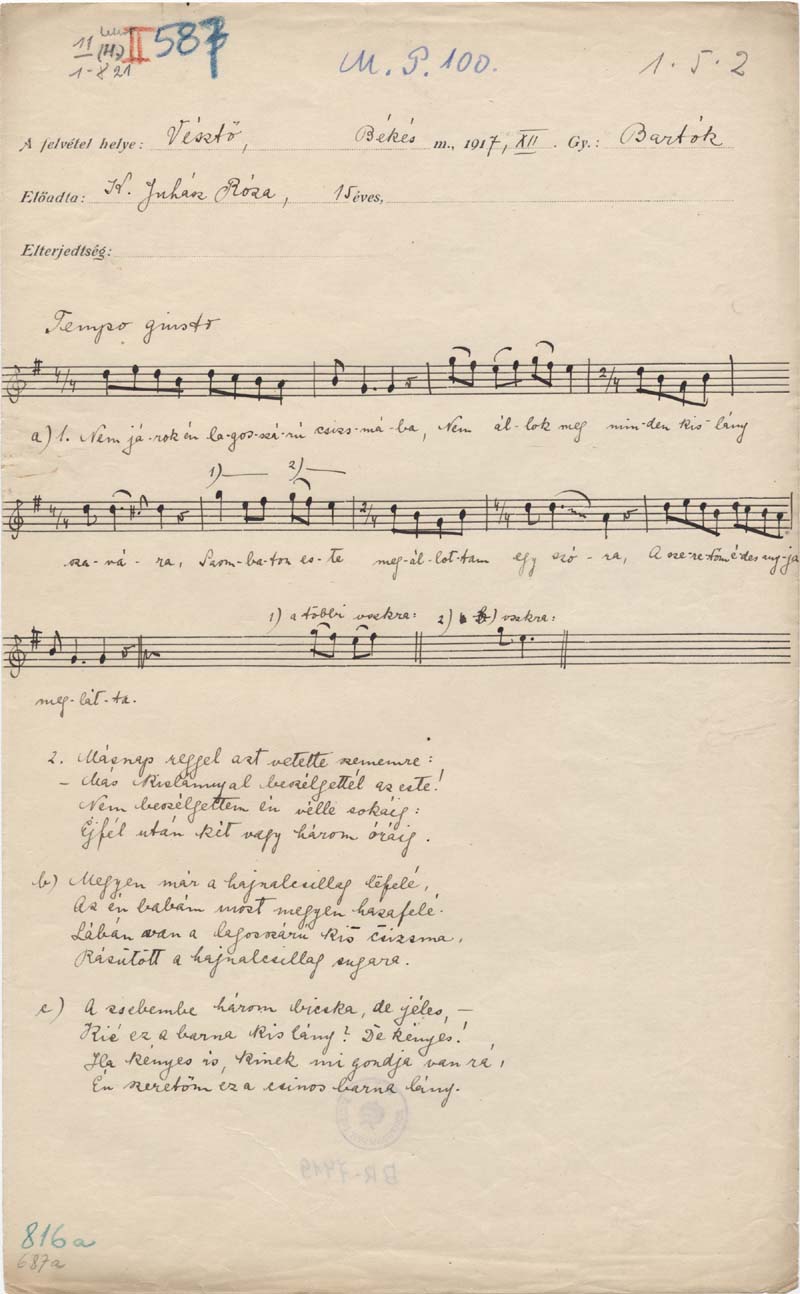 11 (H.) II 587
1-8 21
M. P. 100.
1. 5. 2
A felvétel helye: Vésztő, Békés m., 1917, XII. Gy.: Bartók
Előadta: K. Juhász Róza, 15 éves,
Elterjedtség:
Tempo giusto
4/4 2/4
a) 1. Nem já-rok én la-gos-szá-rú csizs-má-ba, Nem ál-lok meg min-den kis-lány
1) 2)
4/4 2/4 4/4
sza-vá-ra, Szom-ba-ton es-te meg-ál-lot-tam egy szó-ra, A sze-re-tőm édes any-ja
1) a többi vszkra: 2) b) vszkra:
meg-lát-ta.
2. Másnap reggel azt vetette szememre:
– Más kislánnyal beszélgettél az este!
Nem beszélgettem én vélle sokáig:
Éjfél után két vagy három óráig.
b) Megyen már a hajnalcsillag lefelé,
Az én babám most megyen hazafelé.
Lábán van a lagosszárú kis csizsma,
Rásütött a hajnalcsillag sugara.
c) A zsebembe három bicska, de jéles, –
Kié ez a barna kis lány? De kényes!
Ha kényes is, kinek mi gondja van rá,
Én szeretőm ez a csinos barna lány.
BR-7419
816a
687a